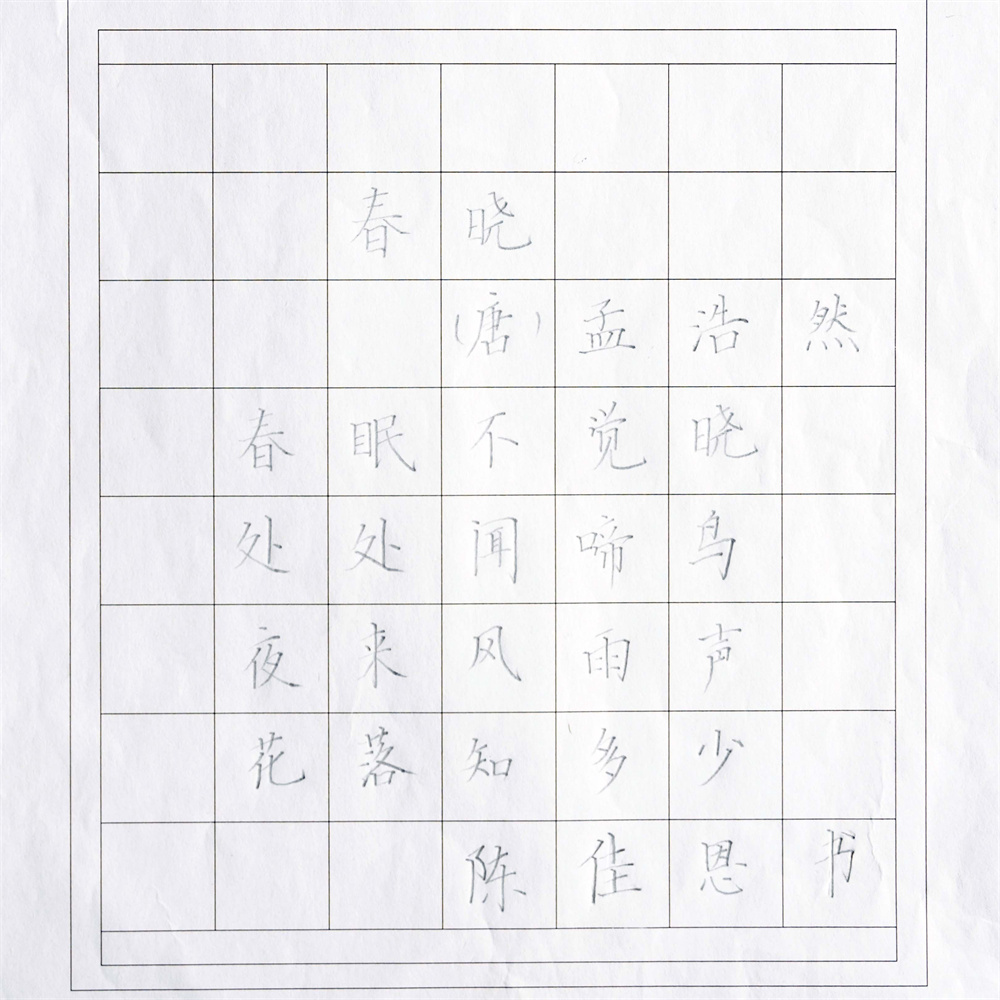 春晓
(唐)孟浩然
春眠不觉晓
处处闻啼鸟
夜来风雨声
花落知多少
陈佳恩书